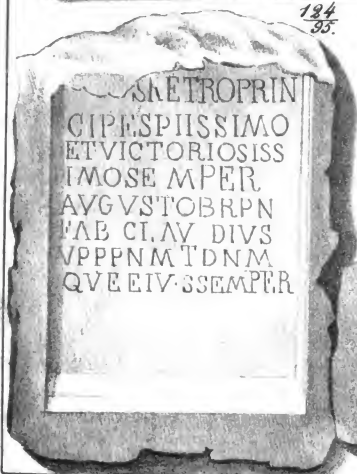 124
95.
SRETROPRIN
CIPESPIISSIMO
ETVICTORIOSISS
IMOSE MPER
AVGVSTOBRPN
FAB CLAV DIVS
VPPPNMTDNM
QVEEIV·SSEMPER